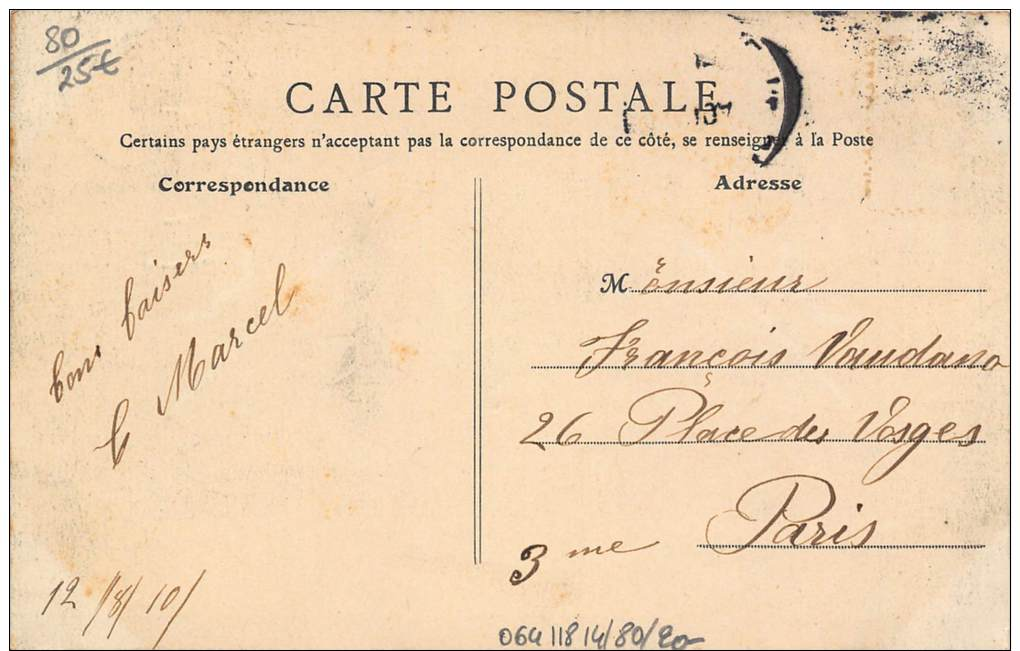 80
25€
CARTE POSTALE
Certains pays étrangers n'acceptant pas la correspondance de ce côté, se renseigner à la Poste
Correspondance
Adresse
bons baisers
Marcel
Monsieur
François Vaudano
26 Place des Vosges
Paris
3me
12/8/10/